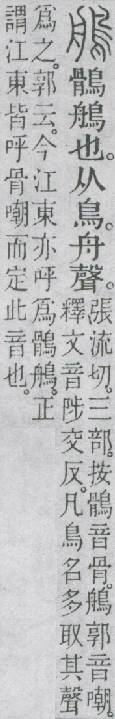 鵃 鶻鵃也。从鳥。舟聲。
張流切。三部。按鶻音骨。鵃郭音嘲。
釋文音陟交反。凡鳥名多取其聲
爲之。郭云。今江東亦呼爲鶻鵃。正
謂江東皆呼骨嘲而定此音也。